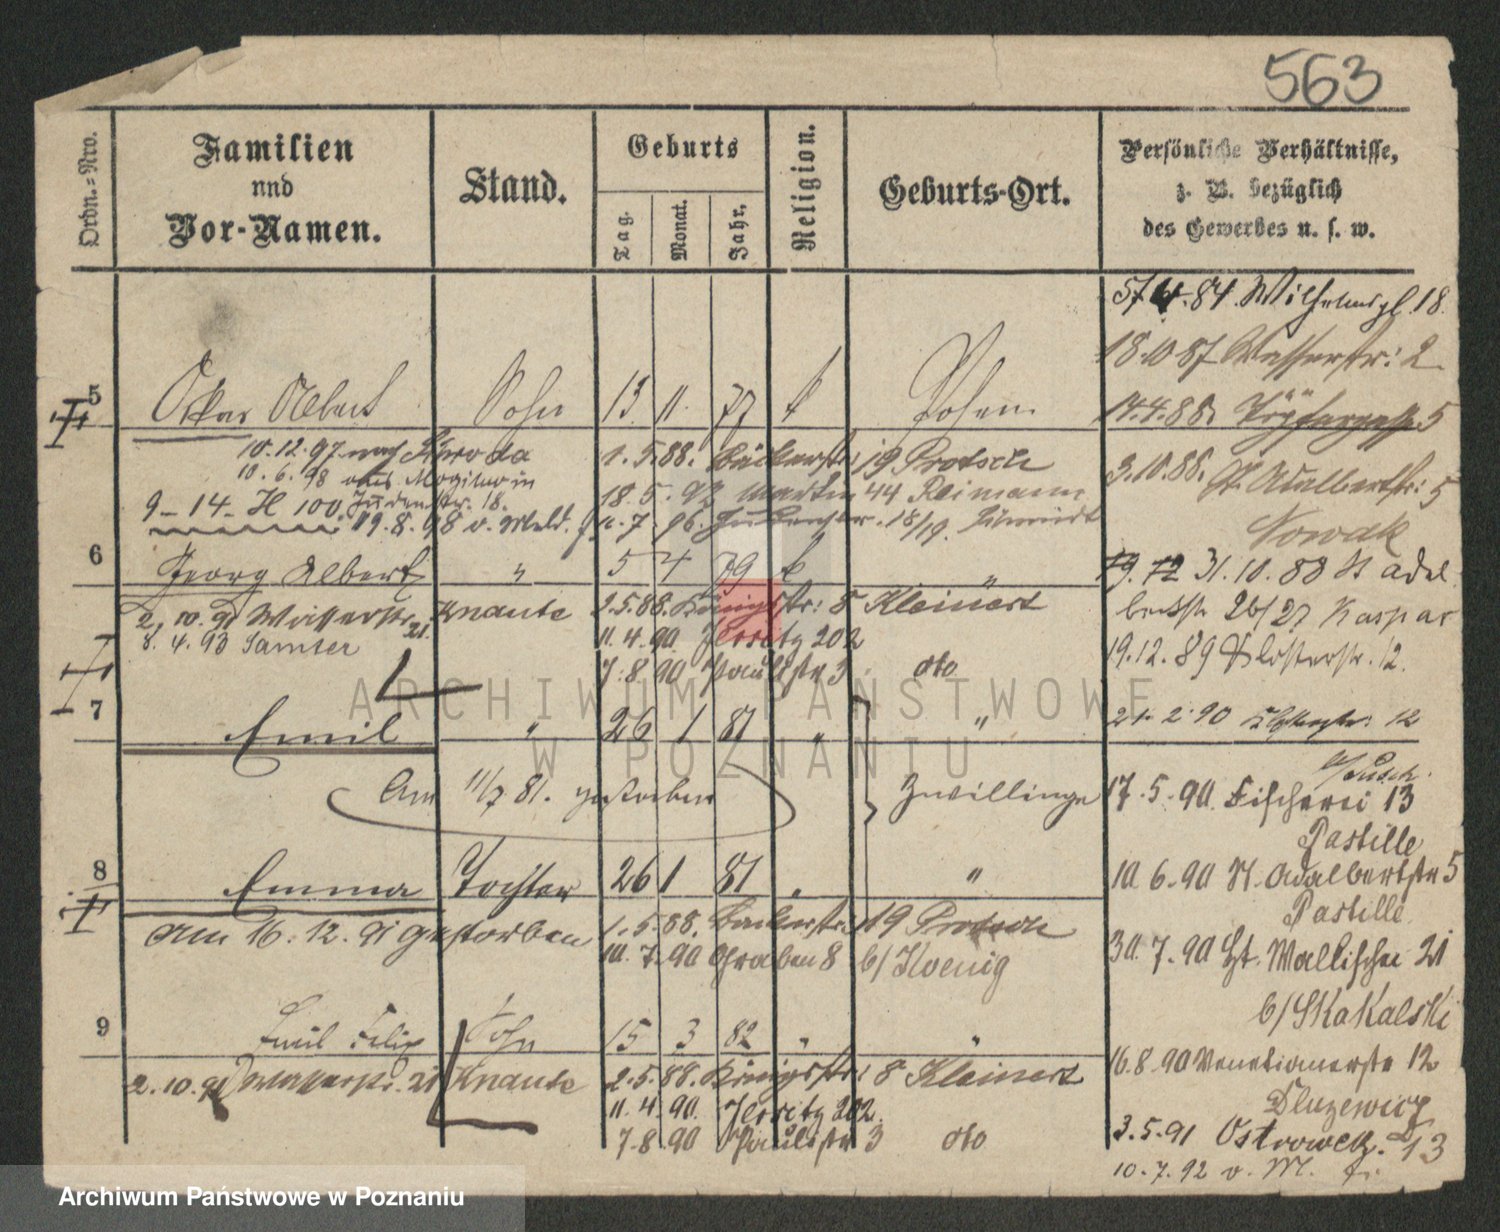 563
Ordn.-Nro.
Familien
und
Vor-Namen.
Stand.
Geburts
Tag.
Monat.
Jahr,
Religion.
Geburts-Ort.
Persönliche Verhältnisse,
z. B. bezüglich
des Gewerbes u. s. w.
84. Wilhelmspl. 18.
18.10 87 Wasserstr: 2
5 Oskar Albert Sohn 13 11. 77 k Posen
14.4.88. Töpfergasse 5
10.12.97 nach Schroda 1.5.88. Bäckerstr: 19 Protsch
10.6.98 aus Mogilno in
3.10.88. St. Adalbertstr: 5
9-14-H 100. Judenstr. 18. 18.5.92 Martin 44 Reimann
19.8.98 v. Meld. 11.7.96. Judenstr. 18/19. Schmidt
Nowak
6 Georg Albert " 5 4 79 k "
31.10.88 St Adal
2.10.91 Wasserstr. 21. Knaute 2.5.88. Königstr: 8 Kleinert
bertstr 26/27 Kaspar
8.4.93 Samter 11.4.90. Jersitz 202
19.12.89 Klosterstr. 12.
7.8.90 Paulistr 3 Otto
7 Emil " 26 1 81 " "
21.2.90 Klosterstr: 12
Am 11/7 81. gestorben Zwillinge
17.5.90. Fischerei 13
Pastille
8 Emma Tochter 26 1 81 " "
10.6.90 St. Adalbertstr 5
Pastille
am 16.12.91 gestorben 1.5.88. Bäckerstr: 19 Protsch
10.7.90 Graben 8 b/Koenig
30.7.90 Wallischei 21
b/Skakalski
9 Emil Felix Sohn 15 3 82 " "
16.8.90 Venetianerstr 12
2.10.91 Wasserstr. 21 Knaute 2.5.88. Königstr: 8 Kleinert
Dluzewicz
11.4.90. Jersitz 202.
3.5.91 Ostrowek. 13
7.8.90 Paulistr 3 Otto
10.7.92 v. M.
ARCHIWUM PAŃSTWOWE
W POZNANIU
Archiwum Państwowe w Poznaniu